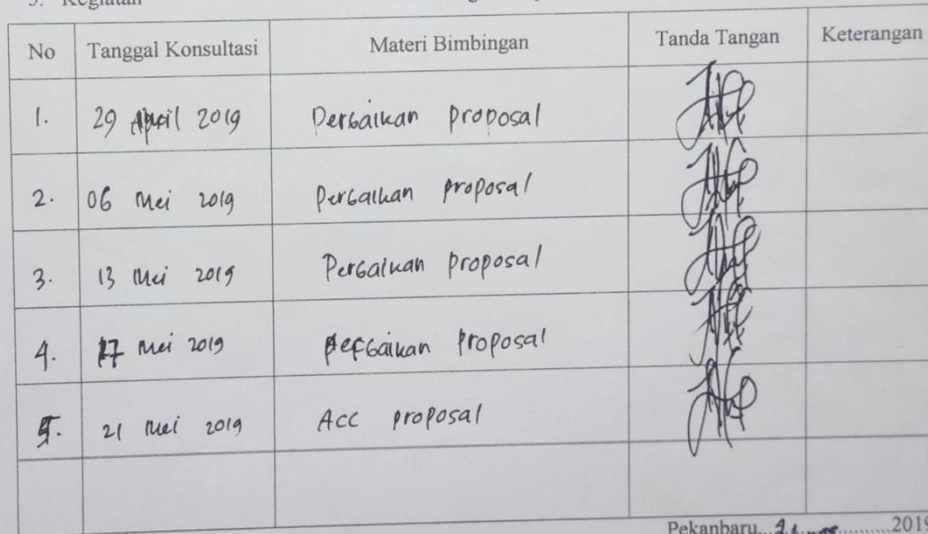 Kegiatan
No Tanggal Konsultasi Materi Bimbingan Tanda Tangan Keterangan
1. 29 April 2019 Perbaikan proposal
2. 06 Mei 2019 Perbaikan proposal
3. 13 Mei 2019 Perbaikan proposal
4. 17 Mei 2019 perbaikan proposal
5. 21 Mei 2019 Acc proposal
Pekanbaru, 2019